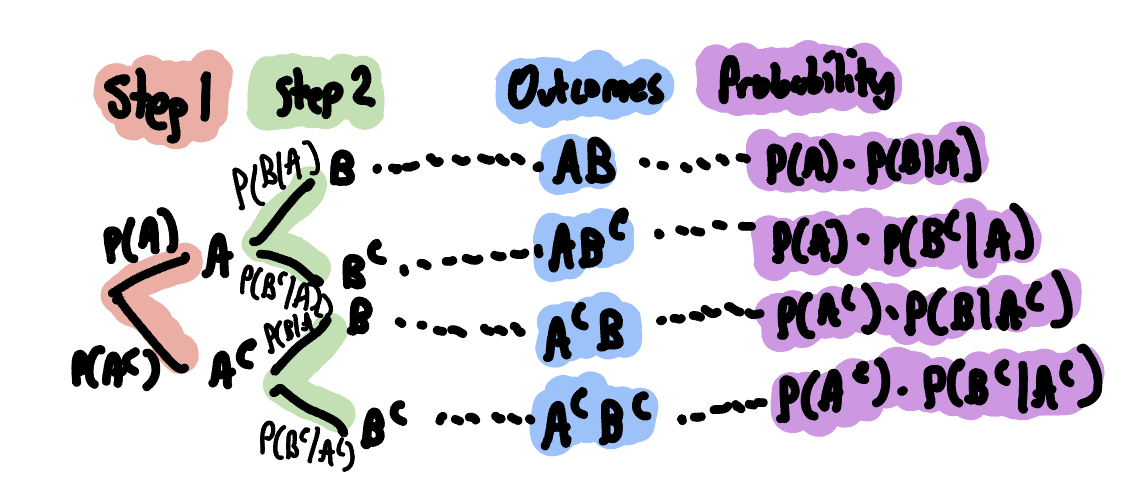 Step 1 Step 2 Outcomes Probability
P(B|A) B AB P(A) · P(B|A)
P(A) A
P(Bᶜ|A) Bᶜ ABᶜ P(A) · P(Bᶜ|A)
P(B|Aᶜ) B AᶜB P(Aᶜ) · P(B|Aᶜ)
P(Aᶜ) Aᶜ
P(Bᶜ|Aᶜ) Bᶜ AᶜBᶜ P(Aᶜ) · P(Bᶜ|Aᶜ)